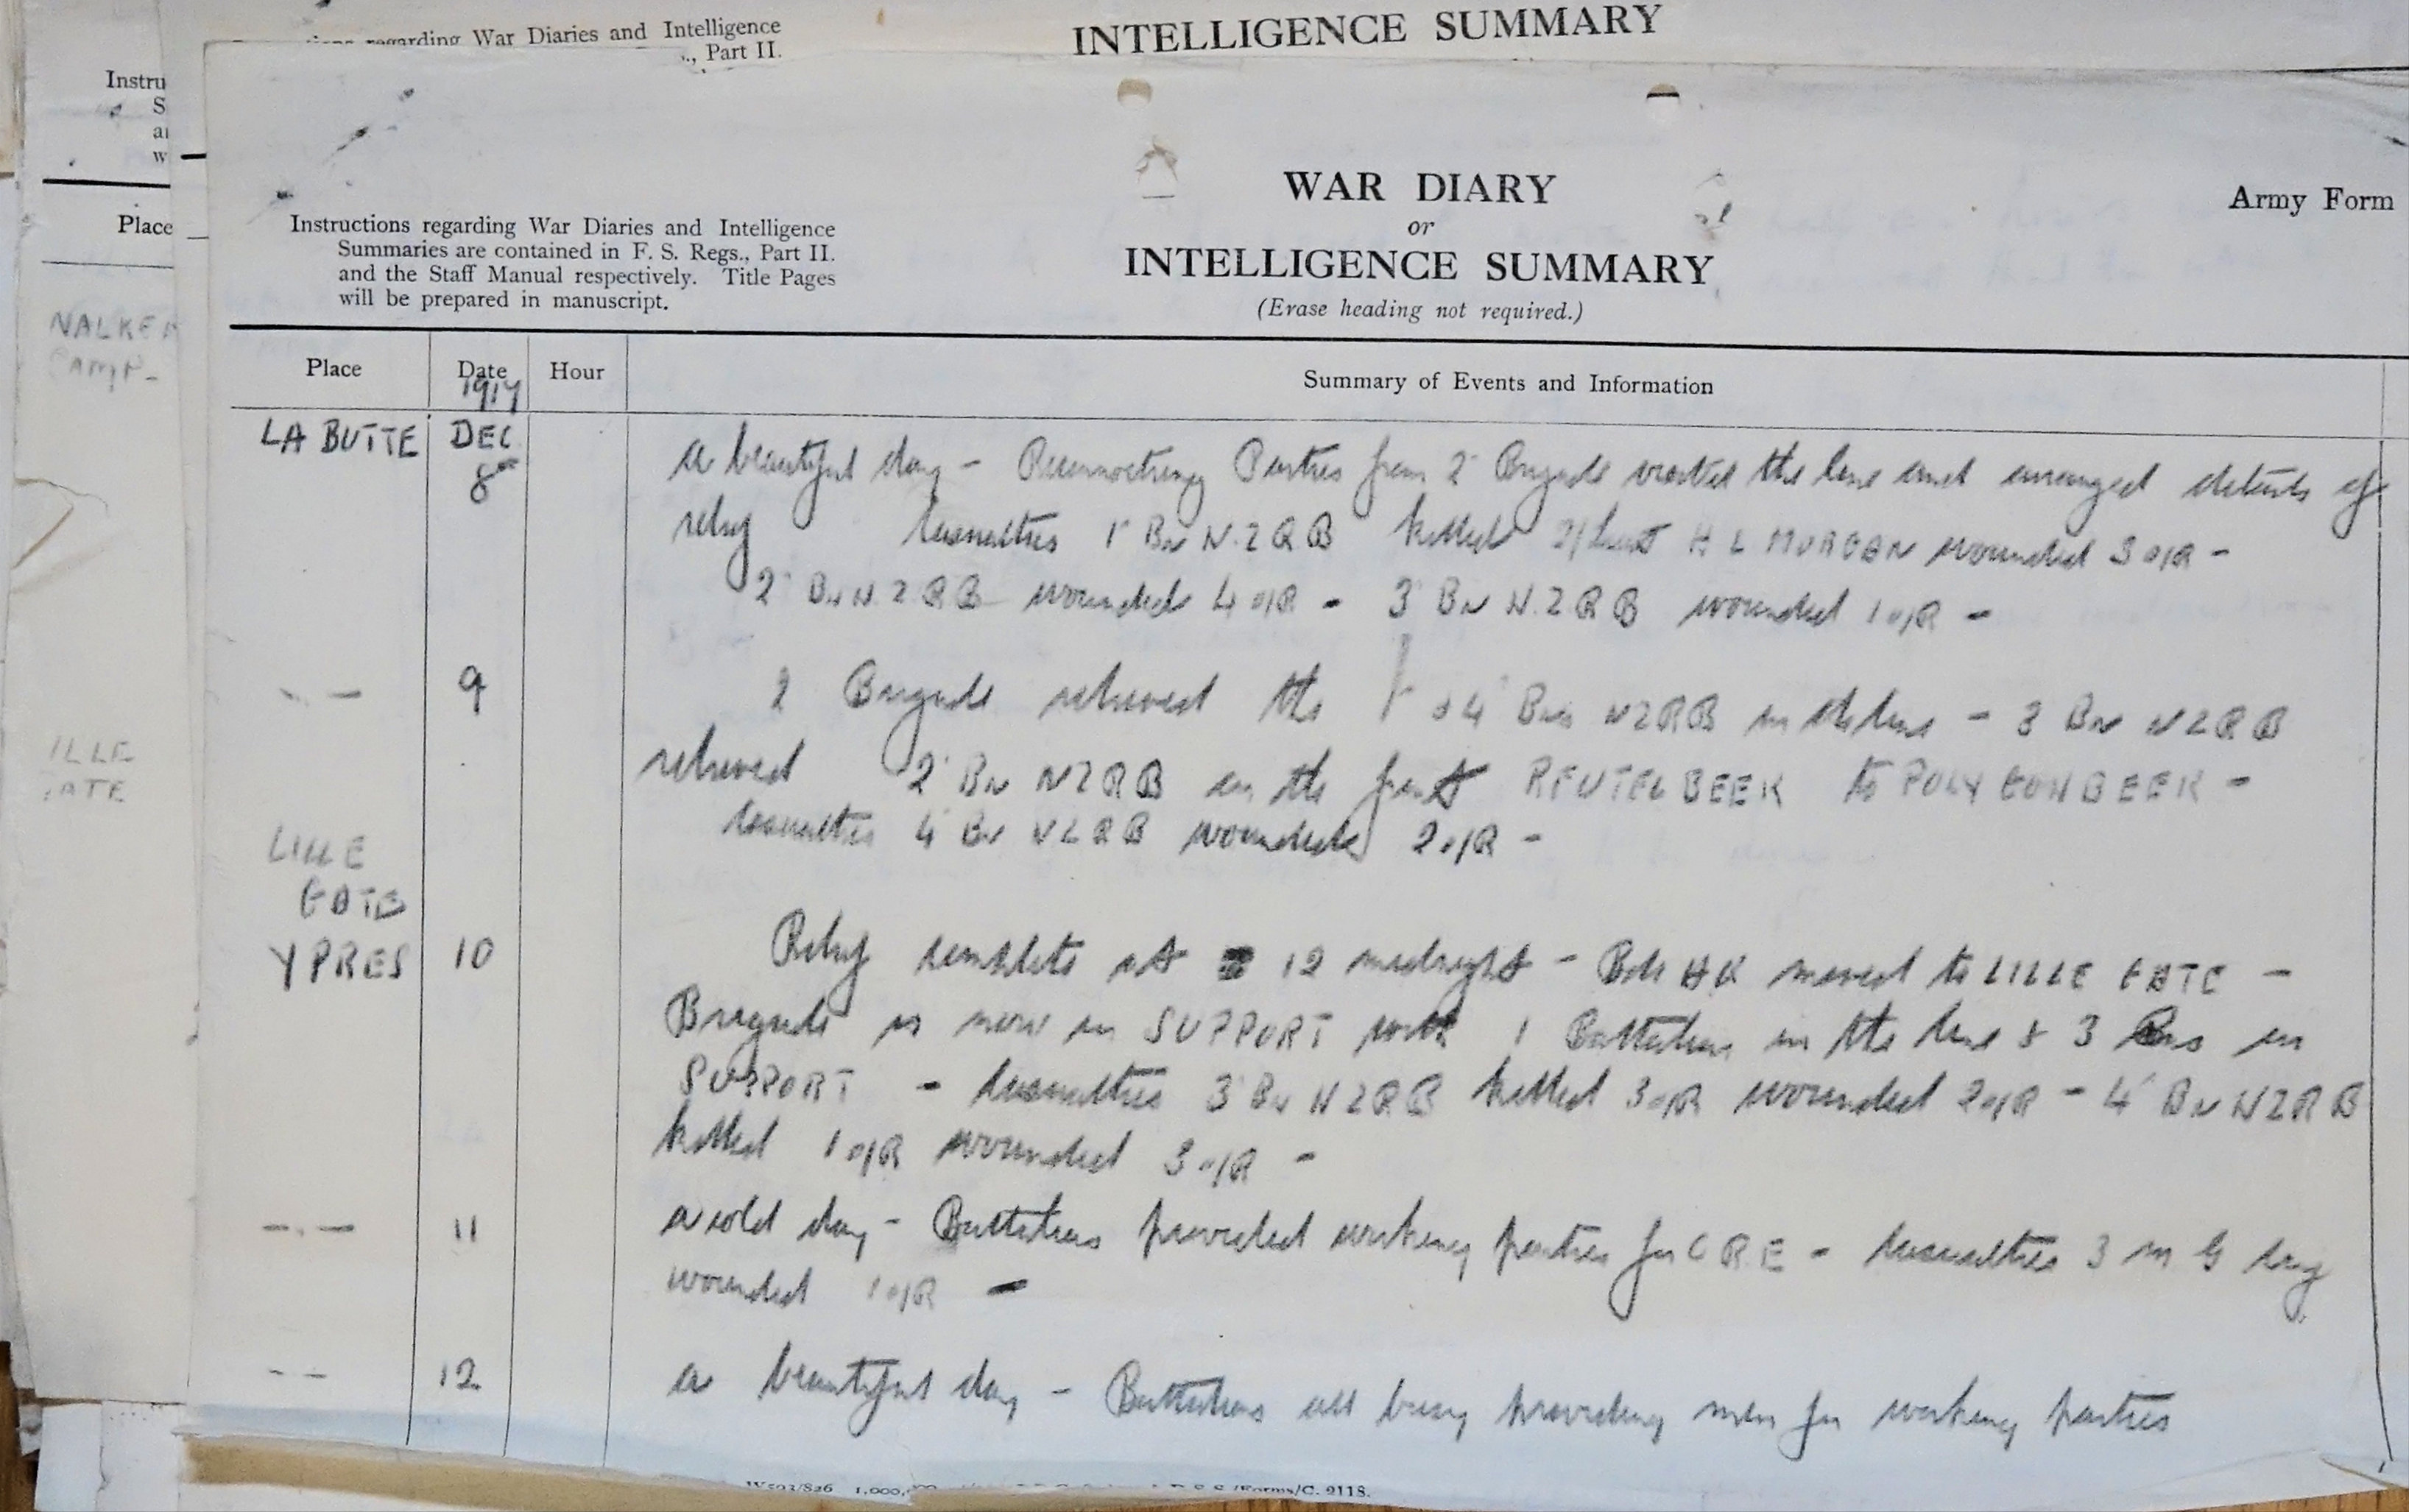 regarding War Diaries and Intelligence
Part II.
INTELLIGENCE SUMMARY
Instru
S
w
Place
NALKER
CAMP -
ILLE
ATE
Instructions regarding War Diaries and Intelligence
Summaries are contained in F. S. Regs., Part II.
and the Staff Manual respectively. Title Pages
will be prepared in manuscript.
WAR DIARY
or
INTELLIGENCE SUMMARY
(Erase heading not required.)
Army Form
Place Date Hour Summary of Events and Information
1917
LA BUTTE DEC 8 A beautiful day - Reconnoitring Parties from 2 Brigade visited the line and arranged details of
relief Casualties 1 Bn N.Z R B killed 2/Lieut H L MORGAN wounded 3 O/R -
2 Bn N.Z R B wounded 4 O/R - 3 Bn N.Z R B wounded 1 O/R -
- - 9 2 Brigade relieved the 1 & 4 Bns NZRB in the line - 3 Bn NZRB
relieved 2 Bn NZRB on the front REUTELBEEK to POLYGONBEEK -
Casualties 4 Bn NZRB wounded 2 O/R -
LILLE
GATE
YPRES 10 Relief complete at 12 midnight - Bde HQ moved to LILLE GATE -
Brigade is now in SUPPORT with 1 Battalion in the line & 3 Bns in
SUPPORT - Casualties 3 Bn NZRB killed 3 O/R wounded 2 O/R - 4 Bn NZRB
killed 1 O/R wounded 3 O/R -
-.- 11 A cold day - Battalions provided working parties for C.R.E - Casualties 3 M G Coy
wounded 1 O/R -
- - 12 A beautiful day - Battalions all busy providing men for working parties
1,000,
/Forms/C. 2118.